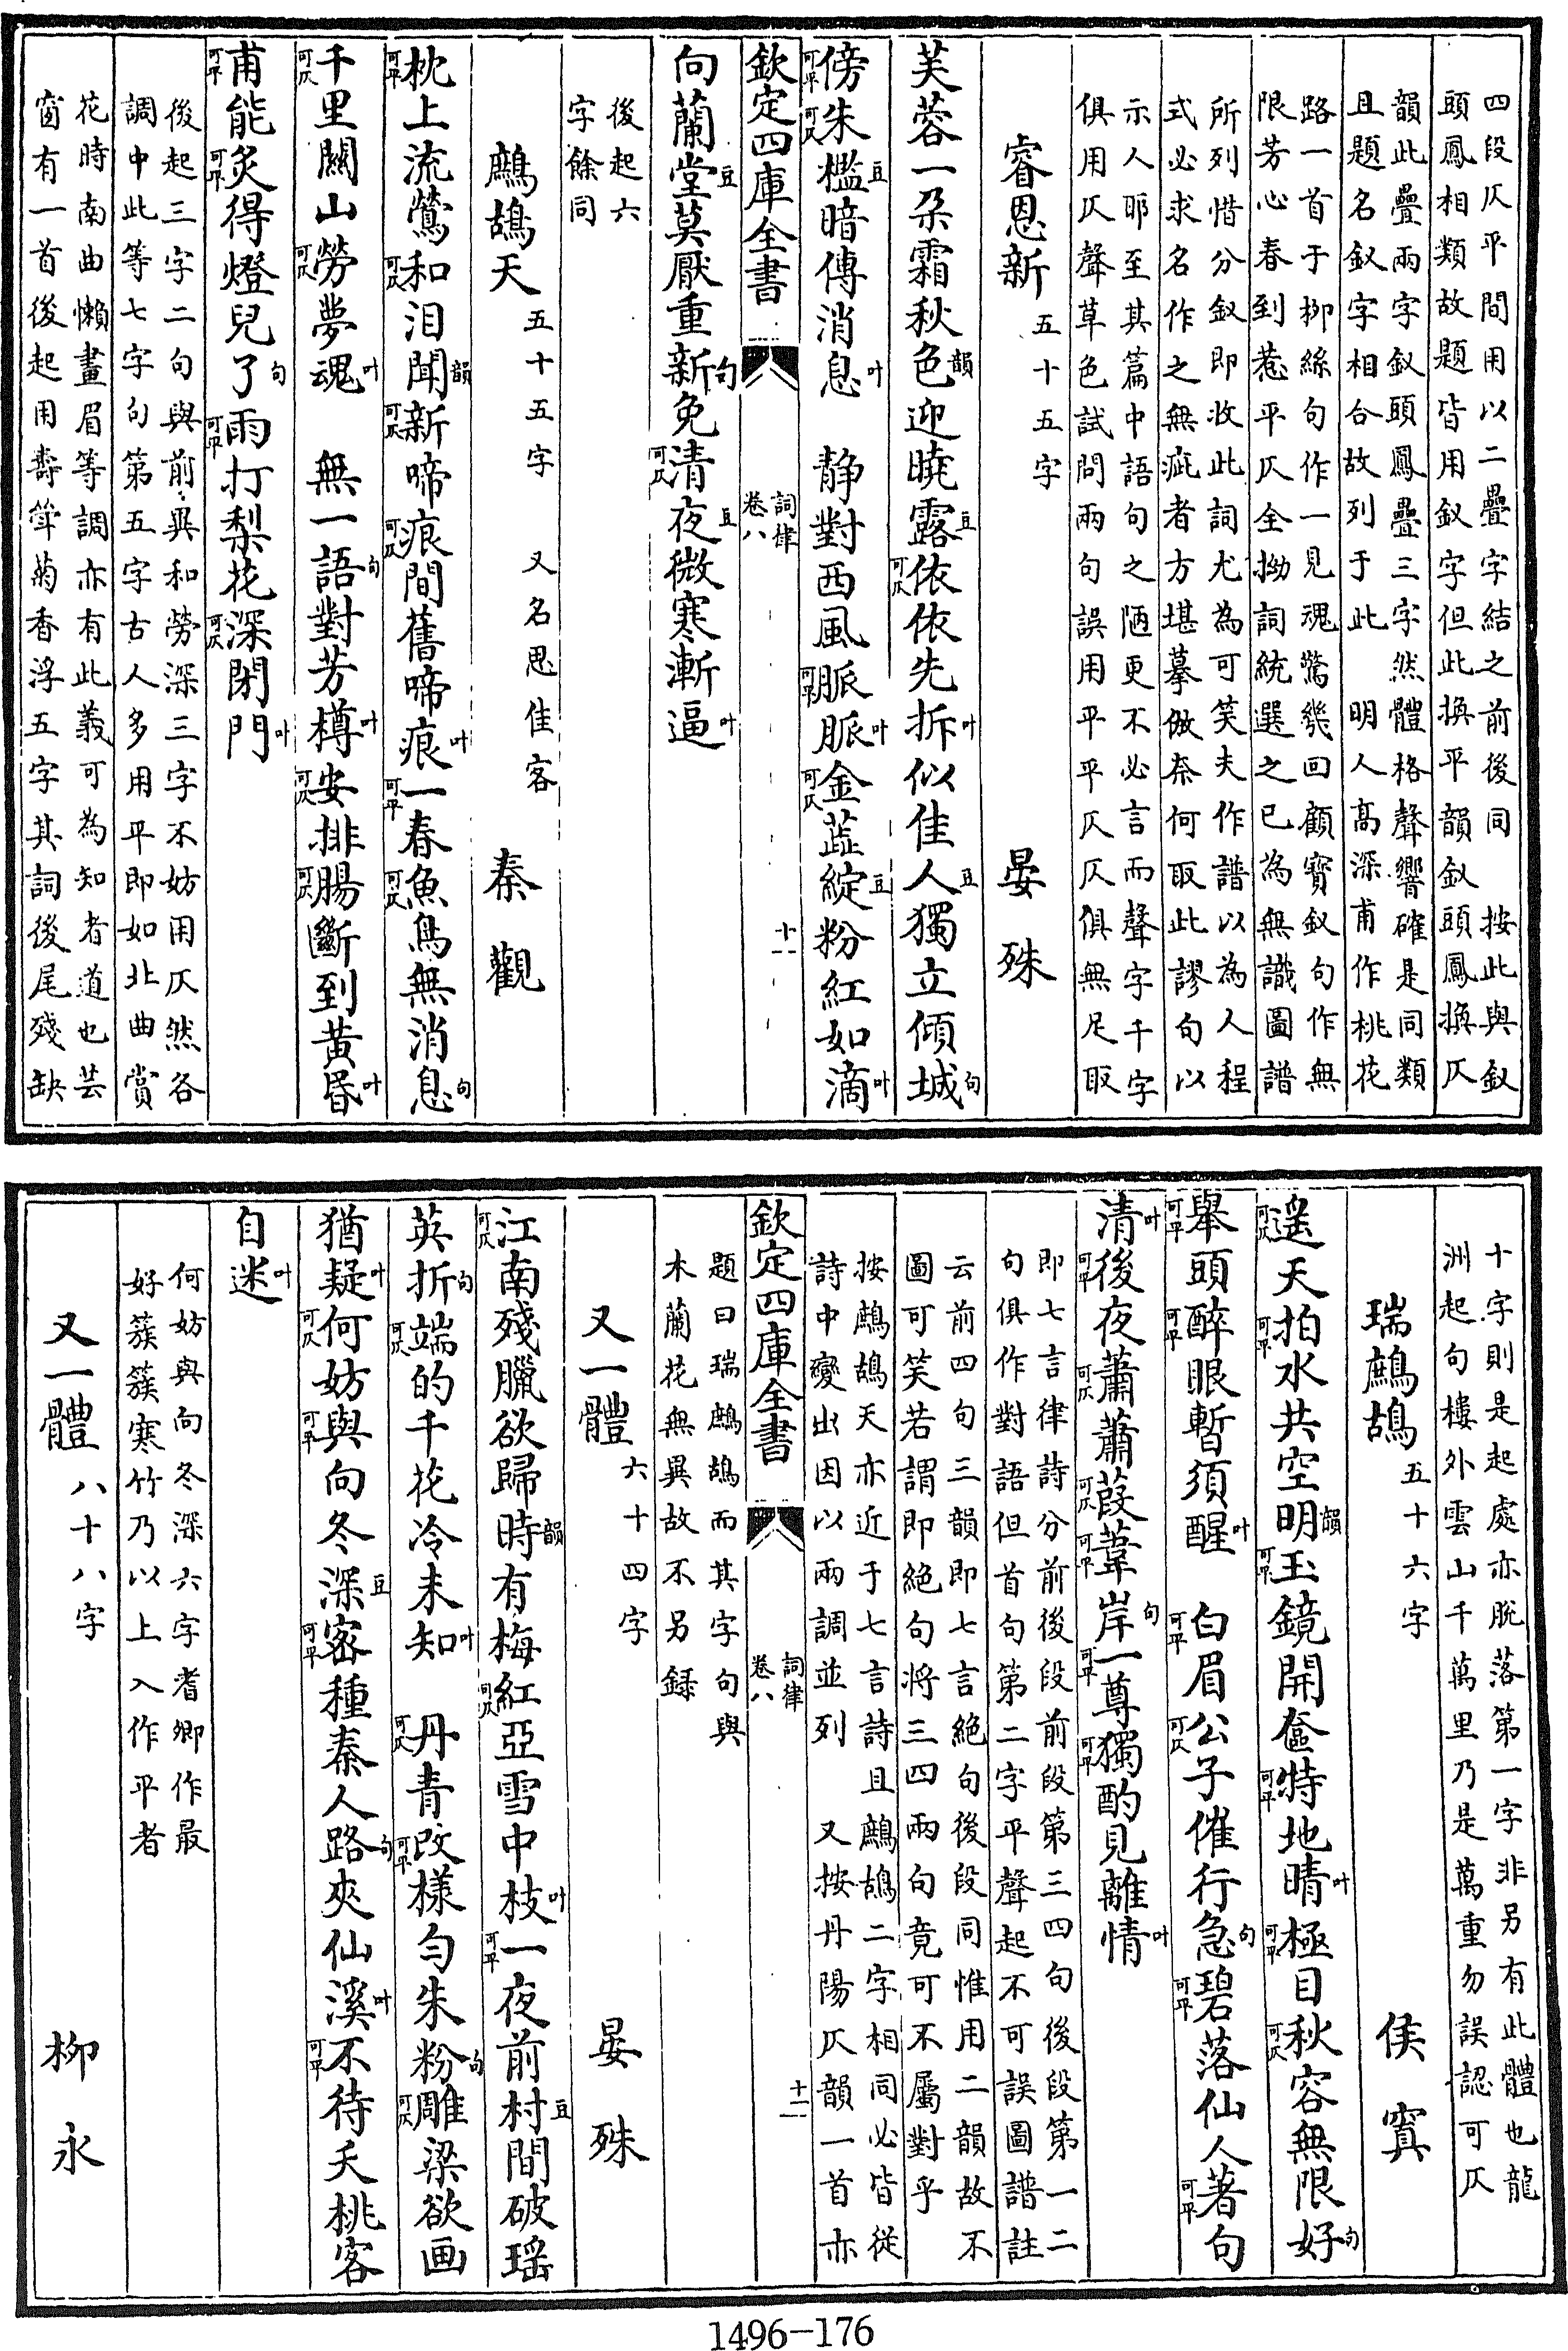 四段仄平間用以二疊字結之前後同　按此與釵
頭鳳相類故題皆用釵字但此換平韻釵頭鳳換仄
韻此疊兩字釵頭鳳疊三字然體格聲響確是同類
且題名釵字相合故列于此　明人高深甫作桃花
路一首于柳絲句作一見魂驚幾回顧寶釵句作無
限芳心春到惹平仄全拗詞統選之已為無識圖譜
所列惜分釵即收此詞尤為可笑夫作譜以為人程
式必求名作之無疵者方堪摹倣奈何取此謬句以
示人耶至其篇中語句之陋更不必言而聲字千字
俱用仄聲草色試問兩句誤用平平仄仄俱無足取
睿恩新　五十五字　晏殊
芙蓉一朶霜秋色韻迎曉露豆依可仄依先拆叶似佳人豆獨立傾城句
傍可平朱可仄檻豆暗傳消息叶　静對西風脈可平脈叶金可仄蕋豆綻粉紅如滴叶
欽定四庫全書　詞律卷八　十一
向蘭堂豆莫厭重新句免清可仄夜豆微寒漸逼叶
後起六
字餘同
鷓鴣天　五十五字　又名思佳客　秦觀
枕可平上流鶯和可仄泪聞韻新可仄啼痕可仄間舊啼痕叶一可平春魚可仄鳥無消息句
千可仄里關山勞可仄夢魂叶　無一語句對芳樽叶安可仄排腸可仄斷到黄昏叶
甫可平能炙可平得燈兒了句雨可平打梨花深可仄閉門叶
後起三字二句與前異和勞深三字不妨用仄然各
調中此等七字句第五字古人多用平即如北曲賞
花時南曲懶畫眉等調亦有此義可為知者道也芸
窗有一首後起用壽聳菊香浮五字其詞後尾殘缺
十字則是起處亦脫落第一字非另有此體也龍
洲起句樓外雲山千萬里乃是萬重勿誤認可仄
瑞鷓鴣　五十六字　侯寘
遥可仄天拍可平水共空明韻玉可平鏡開奩特可平地晴叶極可平目秋可仄容無限好句
舉可平頭醉可平眼暫須醒叶　白可平眉公可仄子催行急句碧可平落仙人著可平句
清叶後可平夜蕭可仄蕭葭可仄葦可平岸句一可平尊獨可平酌見離情叶
即七言律詩分前後段前段第三四句後段第一二
句俱作對語但首句第二字平聲起不可誤圖譜註
云前四句三韻即七言絶句後段同惟用二韻故不
圖可笑若謂即絶句將三四兩句竟可不屬對乎
按鷓鴣天亦近于七言詩且鷓鴣二字相同必皆從
詩中變出因以兩調並列　又按丹陽仄韻一首亦
欽定四庫全書　詞律卷八　十二
題曰瑞鷓鴣而其字句與
木蘭花無異故不另録
又一體　六十四字　晏殊
江可仄南殘臘欲歸時韻有梅紅可仄亞雪中枝叶一可平夜前村豆間破瑶
英折句端可仄的千花冷未知叶　丹可仄青改可平樣匀朱粉句雕可仄梁欲画
猶疑叶何可仄妨與可平向冬深豆密可平種秦人路句夾仙溪叶不可平待夭桃客
自迷叶
何妨與向冬深六字耆卿作最
好簇簇寒竹乃以上入作平者
又一體　八十八字　柳永
1496-176